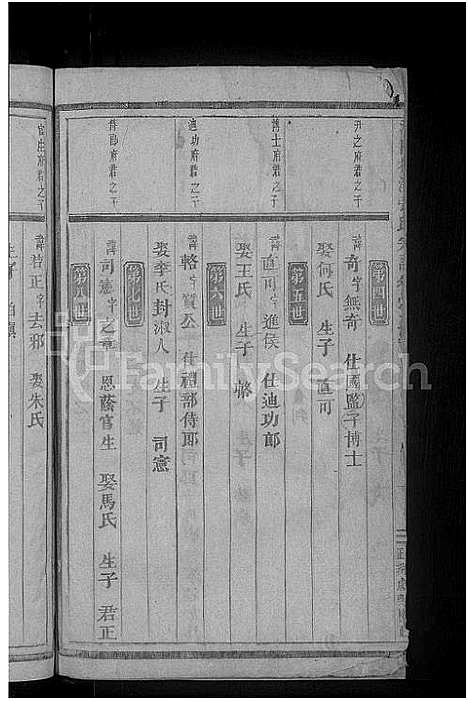 第四世
升之府君之子
諱奇字無奇 仕國監(字)博士
娶何氏 生子 直可
第五世
博士府君之子
諱直可字進侯 仕迪功郎
娶王氏 生子 輅
第六世
迪功府君之子
諱輅字質公 仕禮部侍郎
娶李氏封淑人 生子 司憲
第七世
侍郎府君之子
諱司憲字之章 恩蔭官生 娶馬氏 生子 君正
第八世
官生府君之子
諱君正字去邪 娶朱氏
FamilySearch